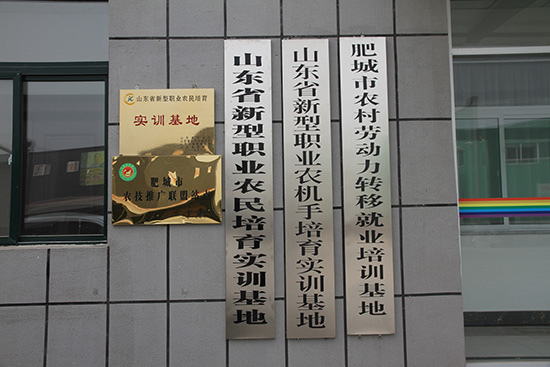 山东省新型职业农民培育
实训基地
肥城市
农技推广联盟
山东省新型职业农民培育实训基地
山东省新型职业农机手培育实训基地
肥城市农村劳动力转移就业培训基地